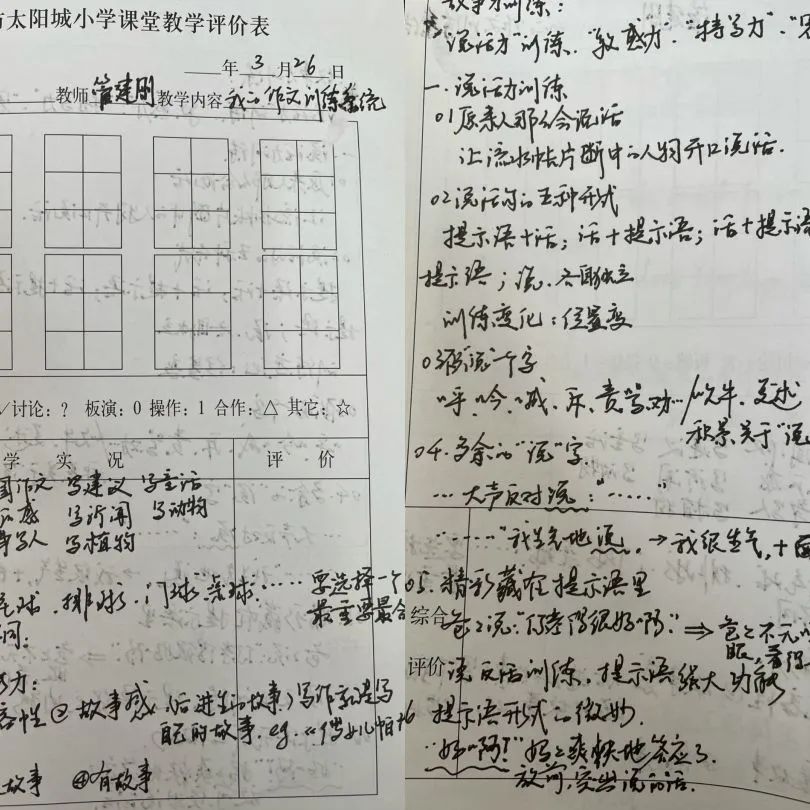 太阳城小学课堂教学评价表
年 3 月 26 日
教师 管建刚 教学内容 我的作文训练系统
讨论：? 板演：0 操作：1 合作：△ 其它：☆
学 实 况 评 价
作文 写建议 写童话
感 写新闻 写动物
写人 写植物
球、排球、门球、桌球…… 要选择一个
最重要最合
问：
力：
性 ② 故事感（后进生的故事）写作就是写
自己的故事. eg.
故事 ④有故事
故事力训练：
"说话力"训练、"敏感力"、"特写力"、
一、说话力训练
01 原来人那么会说话
让流水帐片断中的人物开口说话.
02 说话的五种形式
提示语+话；话+提示语；话+提示语
提示语；说、各自独立
训练变化：位置变
03 说一个字
呼、吟、喊、斥、责骂、对 吹牛、复述
积累关于"说
04. 多余的"说"字
… 大声反对说："……"
……"我生气地说，→我很生气，+
05. 精彩藏在提示语里
综合
爸爸说："你考得很好啊。" ⇒ 爸爸不
眼，看得
评价
说反话训练、提示语强大功能
06 提示语形式的微妙.
"好啊！"妈妈爽快地答应了.
放前，突出说的话.